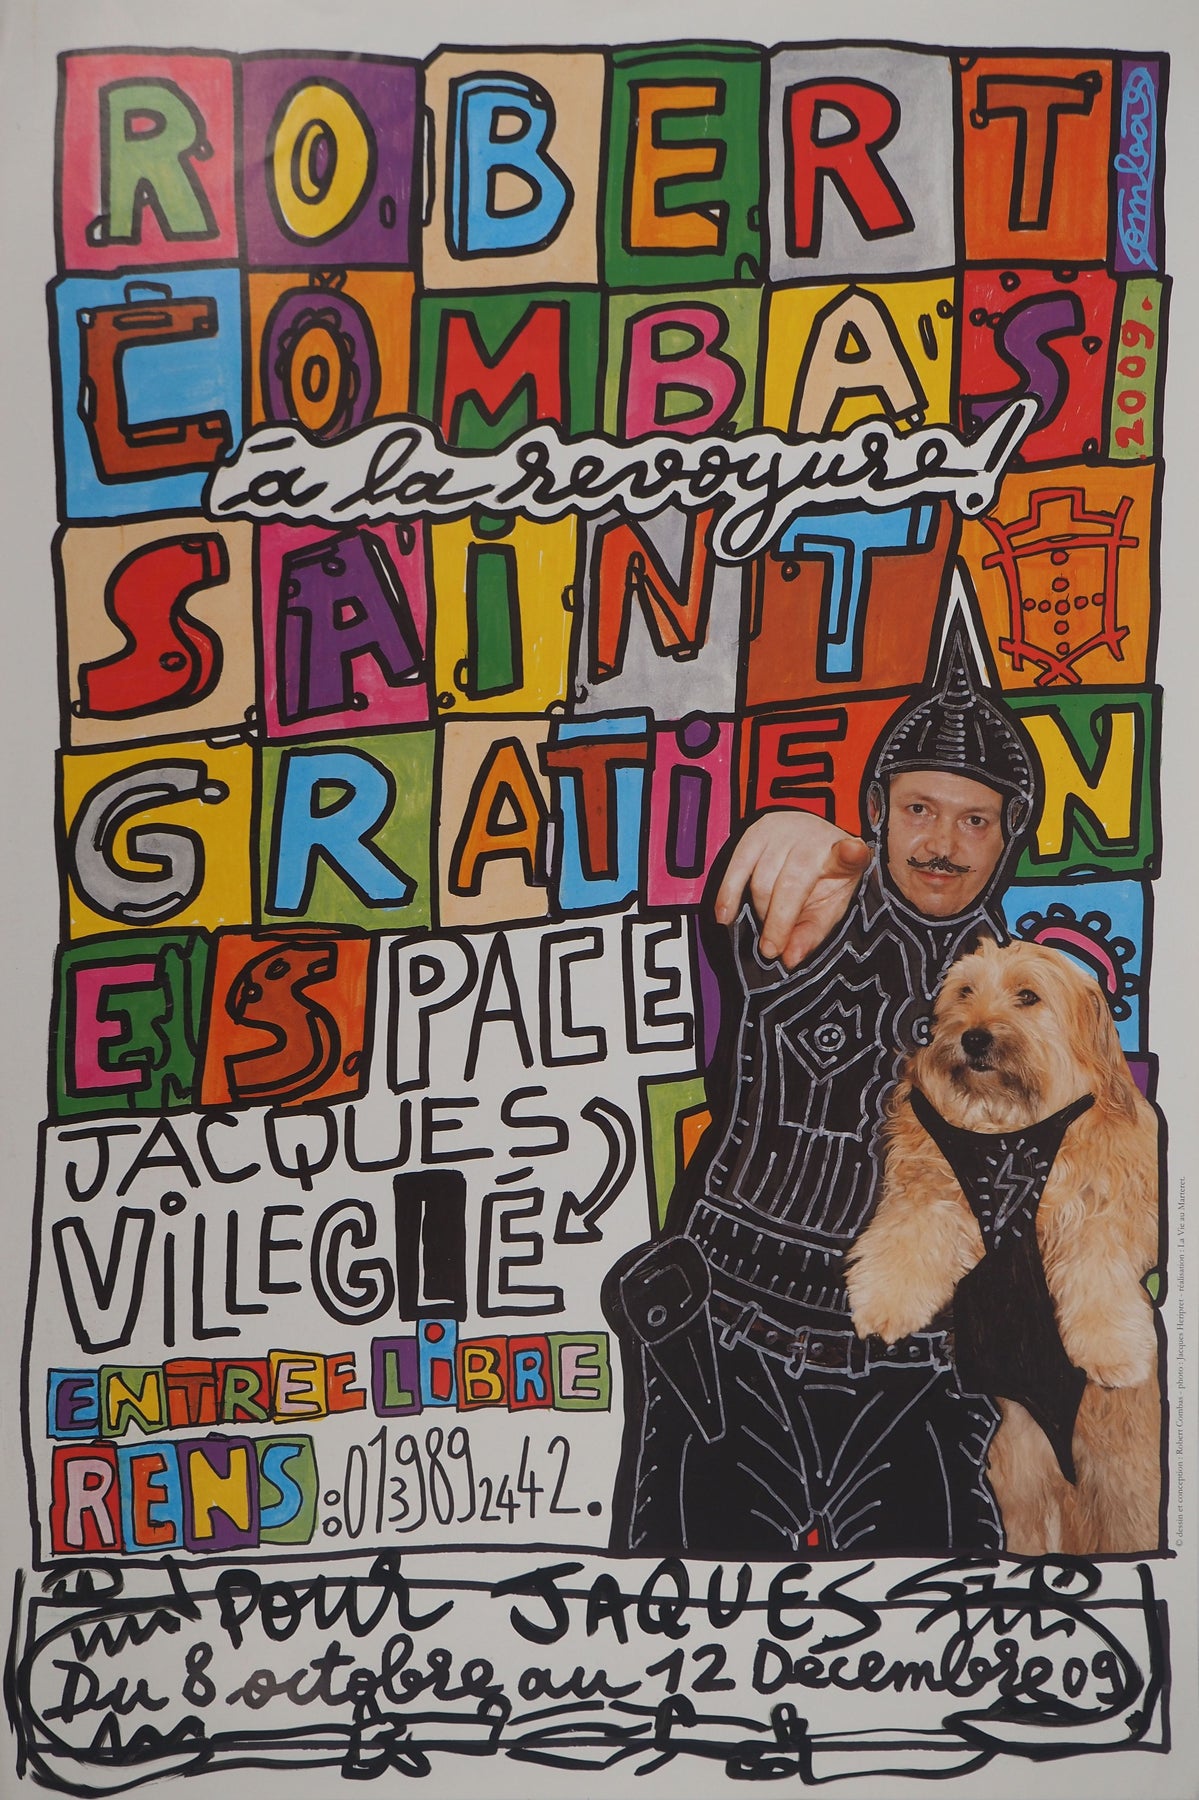 ROBERT
Combas
COMBAS
2009.
à la revoyure!
SAiNT
GRATiEN
ESPACE
JACQUES
ViLLEGLÉ
ENTREE LiBRE
RENS: 0139892442.
POUR JAQUES
Du 8 octobre au 12 Décembre 09
© dessin et conception : Robert Combas - photo : Jacques Heripret - réalisation : La Vie au Marteret.